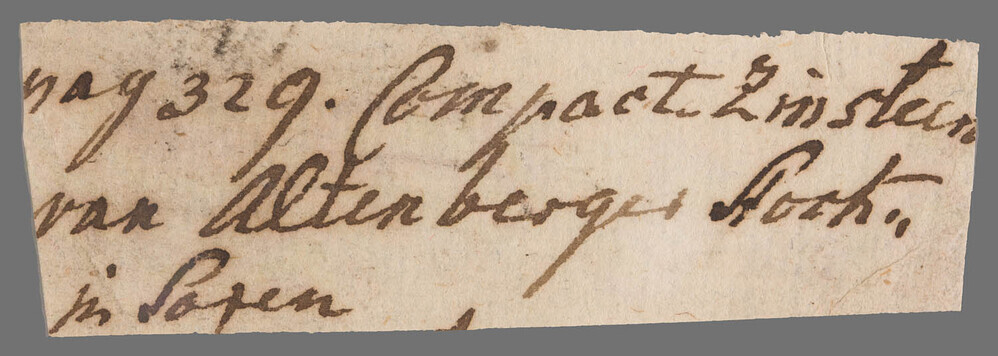 pag 329. Compact. Zinstein
van Altenberger Stock.,
in Saxen